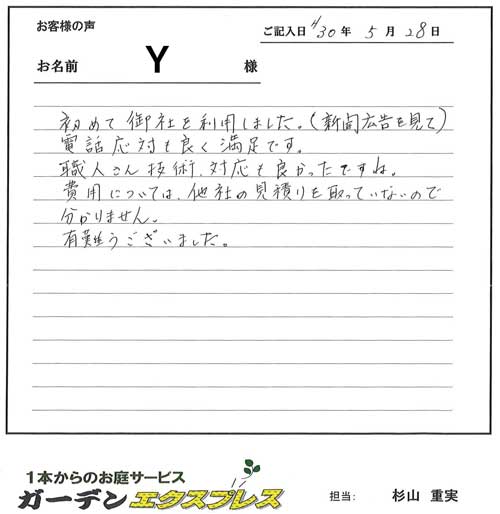 お客様の声
ご記入日 H30年 5月 28日
お名前 Y 様
初めて御社を利用しました。(新聞広告を見て)
電話応対も良く満足です。
職人さん技術、対応も良かったですね。
費用については、他社の見積りを取っていないので
分かりません。
有難うございました。
1本からのお庭サービス
ガーデンエクスプレス
担当: 杉山 重実